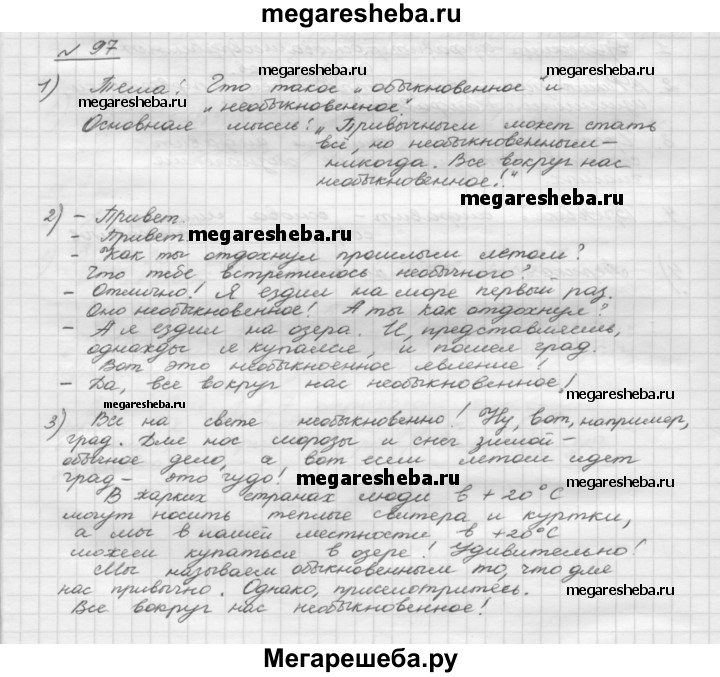 megaresheba.ru
№ 97
1) Тема: Что такое „обыкновенное" и
megaresheba.ru
megaresheba.ru
„необыкновенное".
Основная мысль: „Привычным может стать
всё, но необыкновенным –
никогда. Все вокруг нас
необыкновенное!"
megaresheba.ru
2) – Привет.
– Привет
megaresheba.ru
– Как ты отдохнул прошлым летом?
Что тебе встретилось необычного?
megaresheba.ru
– Отлично! Я ездил на море первый раз.
Оно необыкновенное! А ты как отдохнул?
– А я ездил на озера. И, представляешь,
однажды я купался, и пошел град.
Вот это необыкновенное явление!
– Да, все вокруг нас необыкновенное!
megaresheba.ru
megaresheba.ru
3) Все на свете необыкновенно! Ну, вот, например,
град. Для нас морозы и снег зимой –
обычное дело, а вот если летом идет
град – это чудо!
megaresheba.ru
megaresheba.ru
В жарких странах люди в +20°С
могут носить теплые свитера и куртки,
а мы в нашей местности в +20°С
можем купаться в озере! Удивительно!
Мы называем обыкновенным то, что для
нас привычно. Однако, присмотритесь.
megaresheba.ru
Все вокруг нас необыкновенное!
Мегарешеба.ру